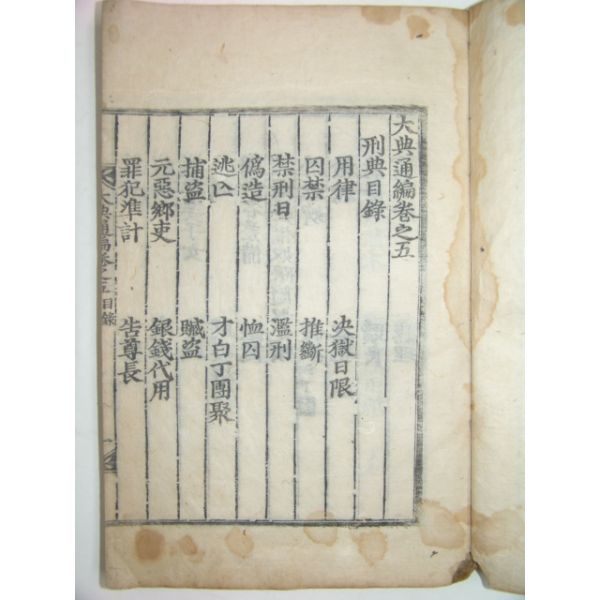 大典通編卷之五
刑典目錄
用律 决獄日限
囚禁 推斷
禁刑日 濫刑
僞造 恤囚
逃亡 才白丁團聚
捕盜 贓盜
元惡鄕吏 銀錢代用
罪犯準計 告尊長
大典通編卷之五 目錄 一